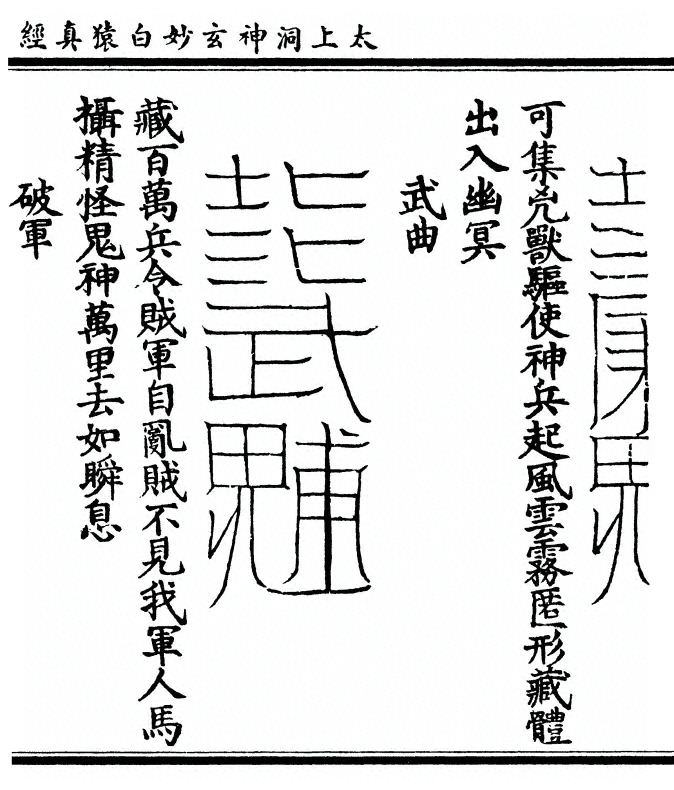 太上洞神玄妙白猿真經
可集兇獸驅使神兵起風雲霧匿形藏體
出入幽冥
武曲
藏百萬兵令賊軍自亂賊不見我軍人馬
攝精怪鬼神萬里去如瞬息
破軍